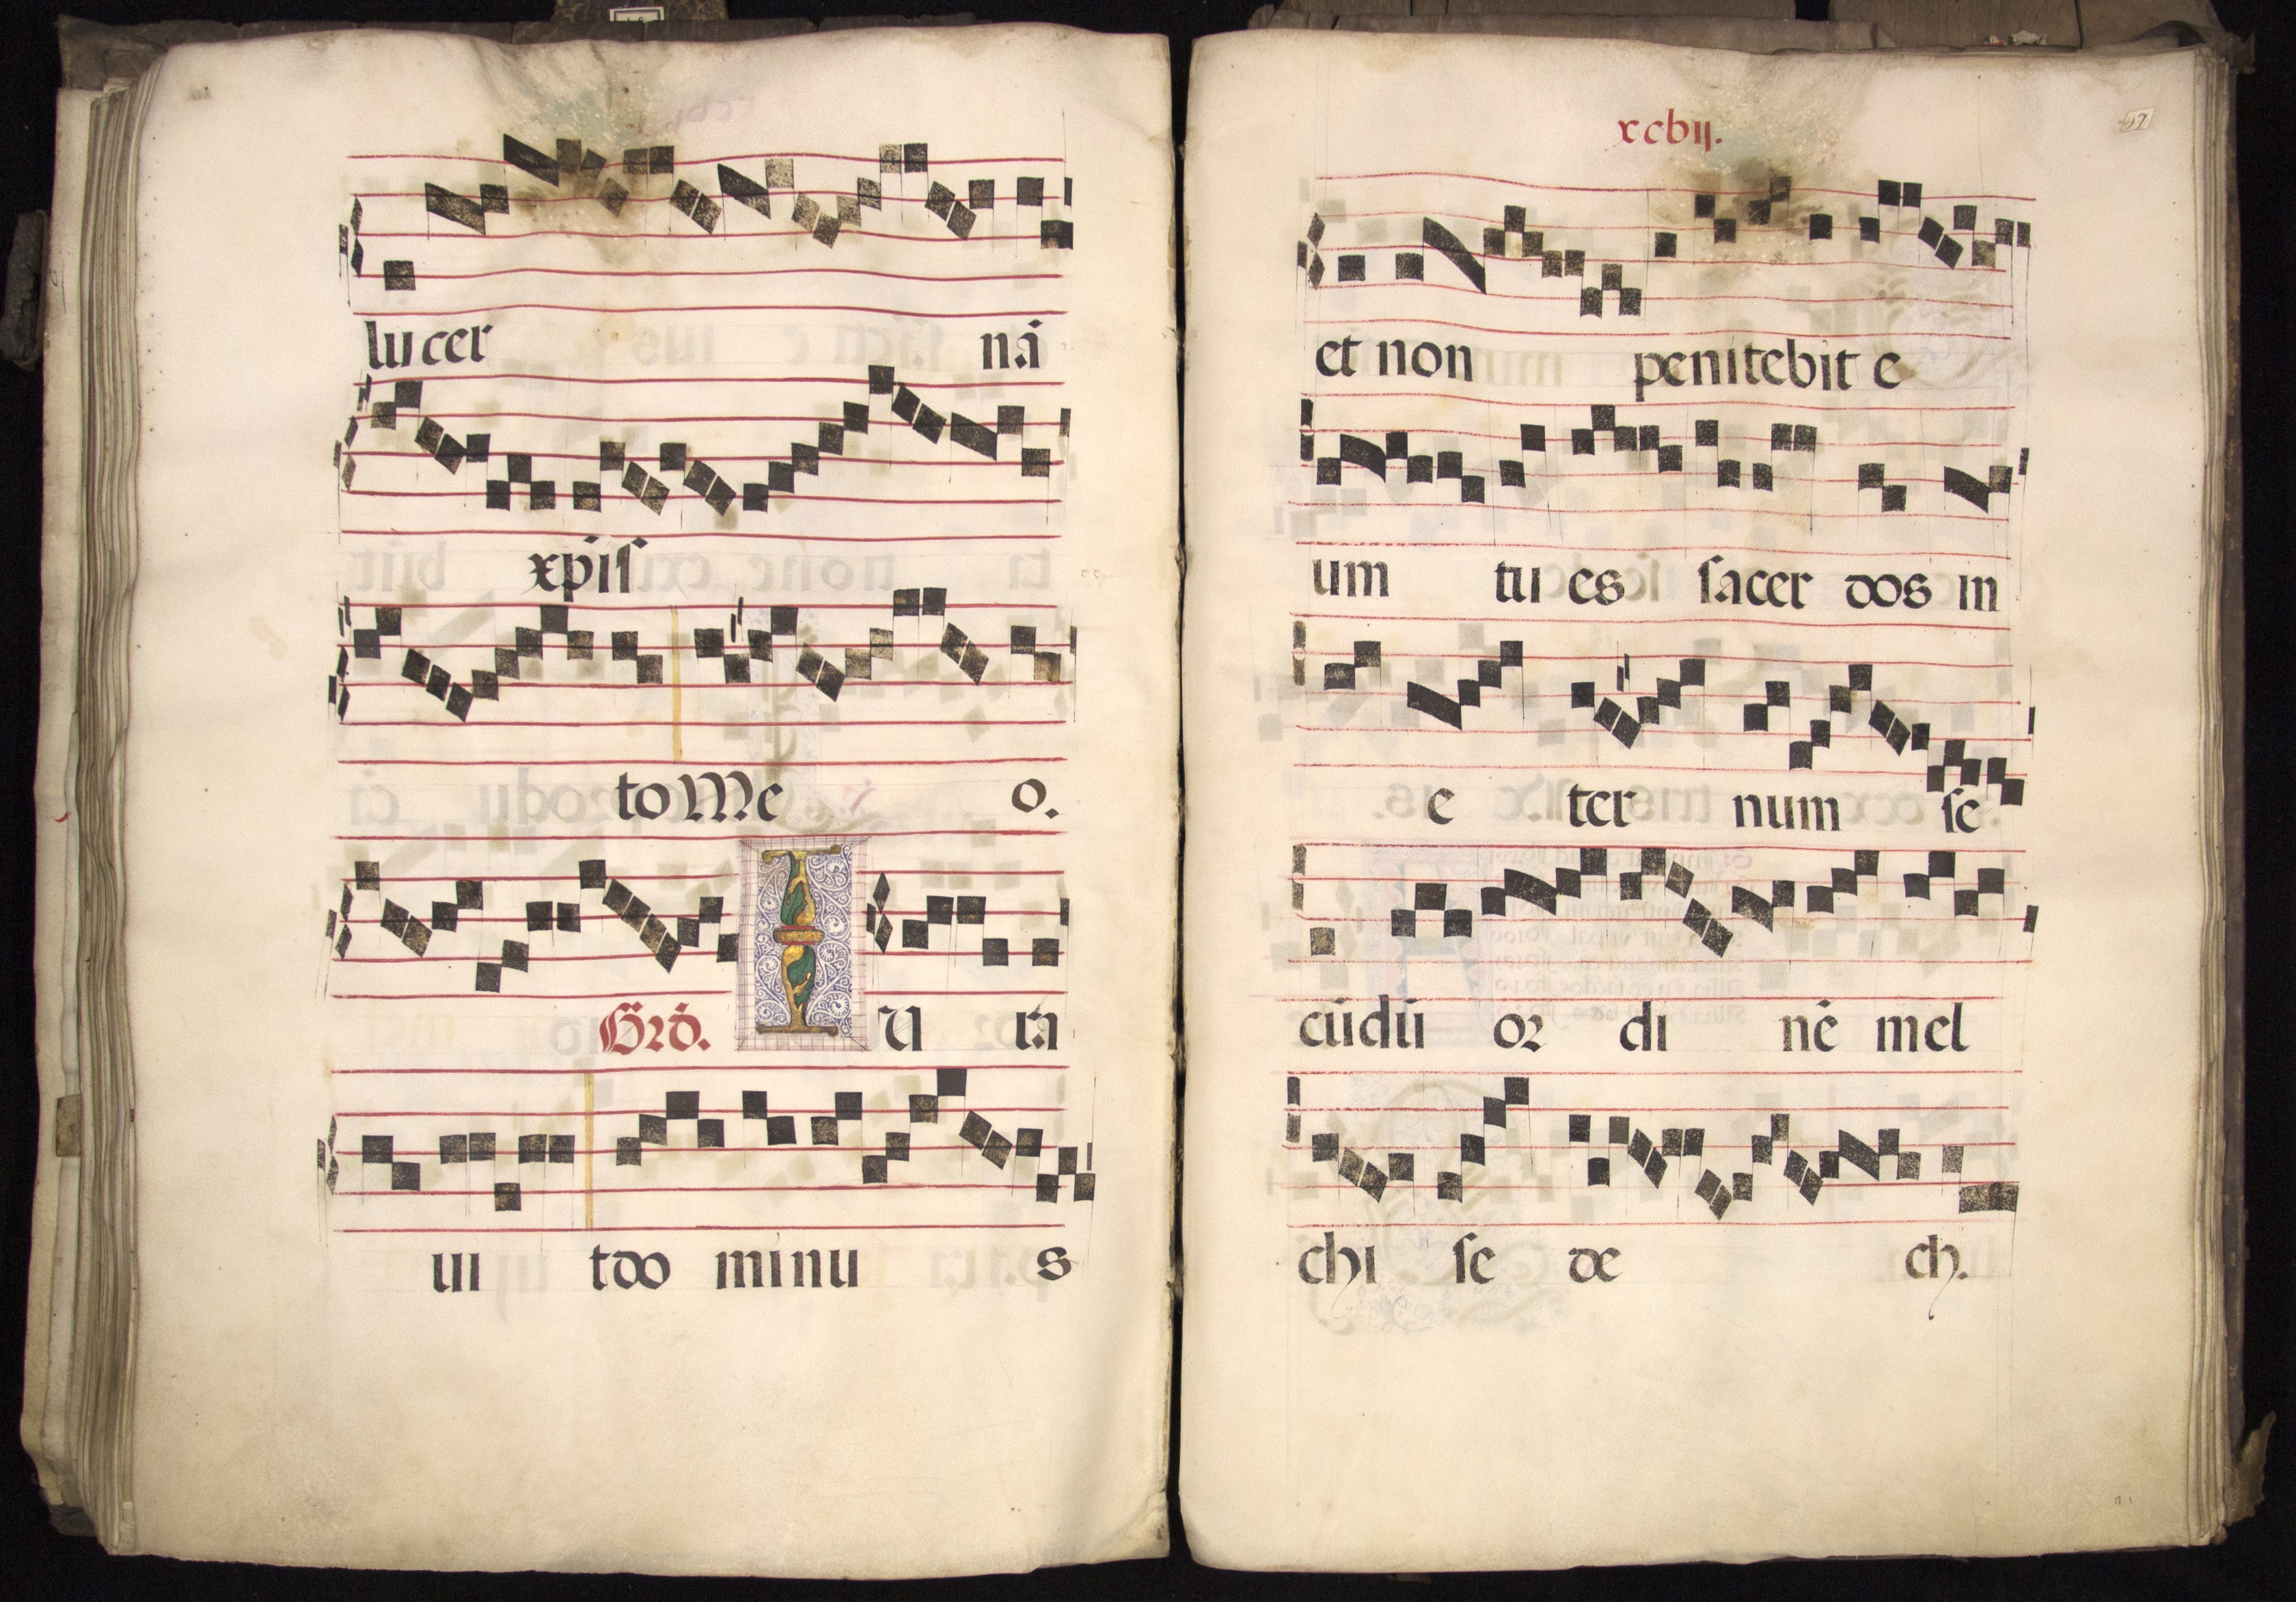 lu cer nā
xp̄iſ
to Me o.
Grō. I U ra
ui tdo minu s
xcvij.
97
et non penitebit e
um tu es ſacer dos in
e ter num ſe
cūdū or di nē mel
chi ſe de ch.